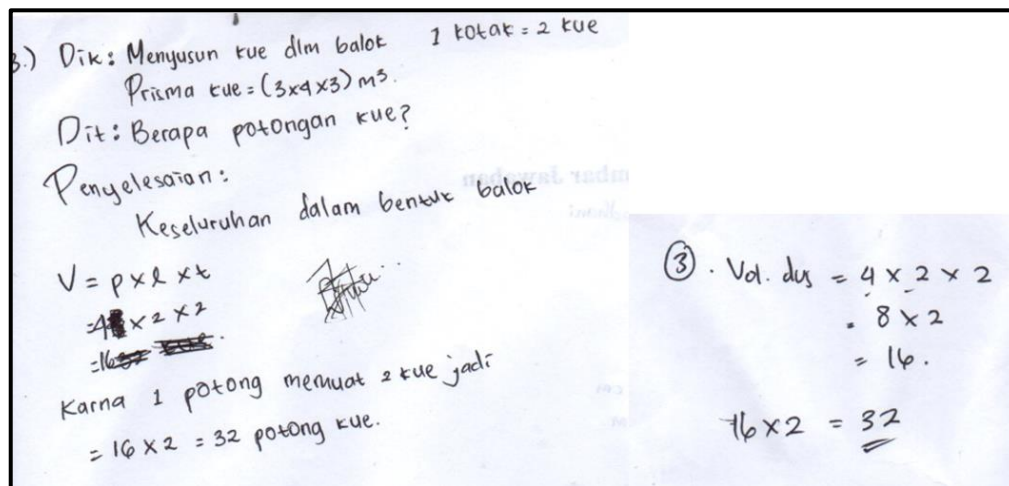 3.) Dik: Menyusun kue dlm balok 1 kotak = 2 kue
Prisma kue = (3x4x3) m³.
Dit: Berapa potongan kue?
Penyelesaian:
Keseluruhan dalam bentuk balok
V = p x l x t
=4 x 2 x 2
=16
Karna 1 potong memuat 2 kue jadi
= 16 x 2 = 32 potong kue.
③. Vol. dus = 4 x 2 x 2
= 8 x 2
= 16.
16 x 2 = 32